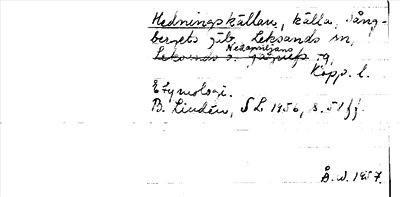 Hedningskällan, källa, Sång-
bergets jtb, Leksands sn,
Nedansiljans
Leksands o. Gagnefs tg,
Kopp. l.
Etymologi.
B. Lindén, SL 1956, s. 51 ff.
Å. W. 1957.